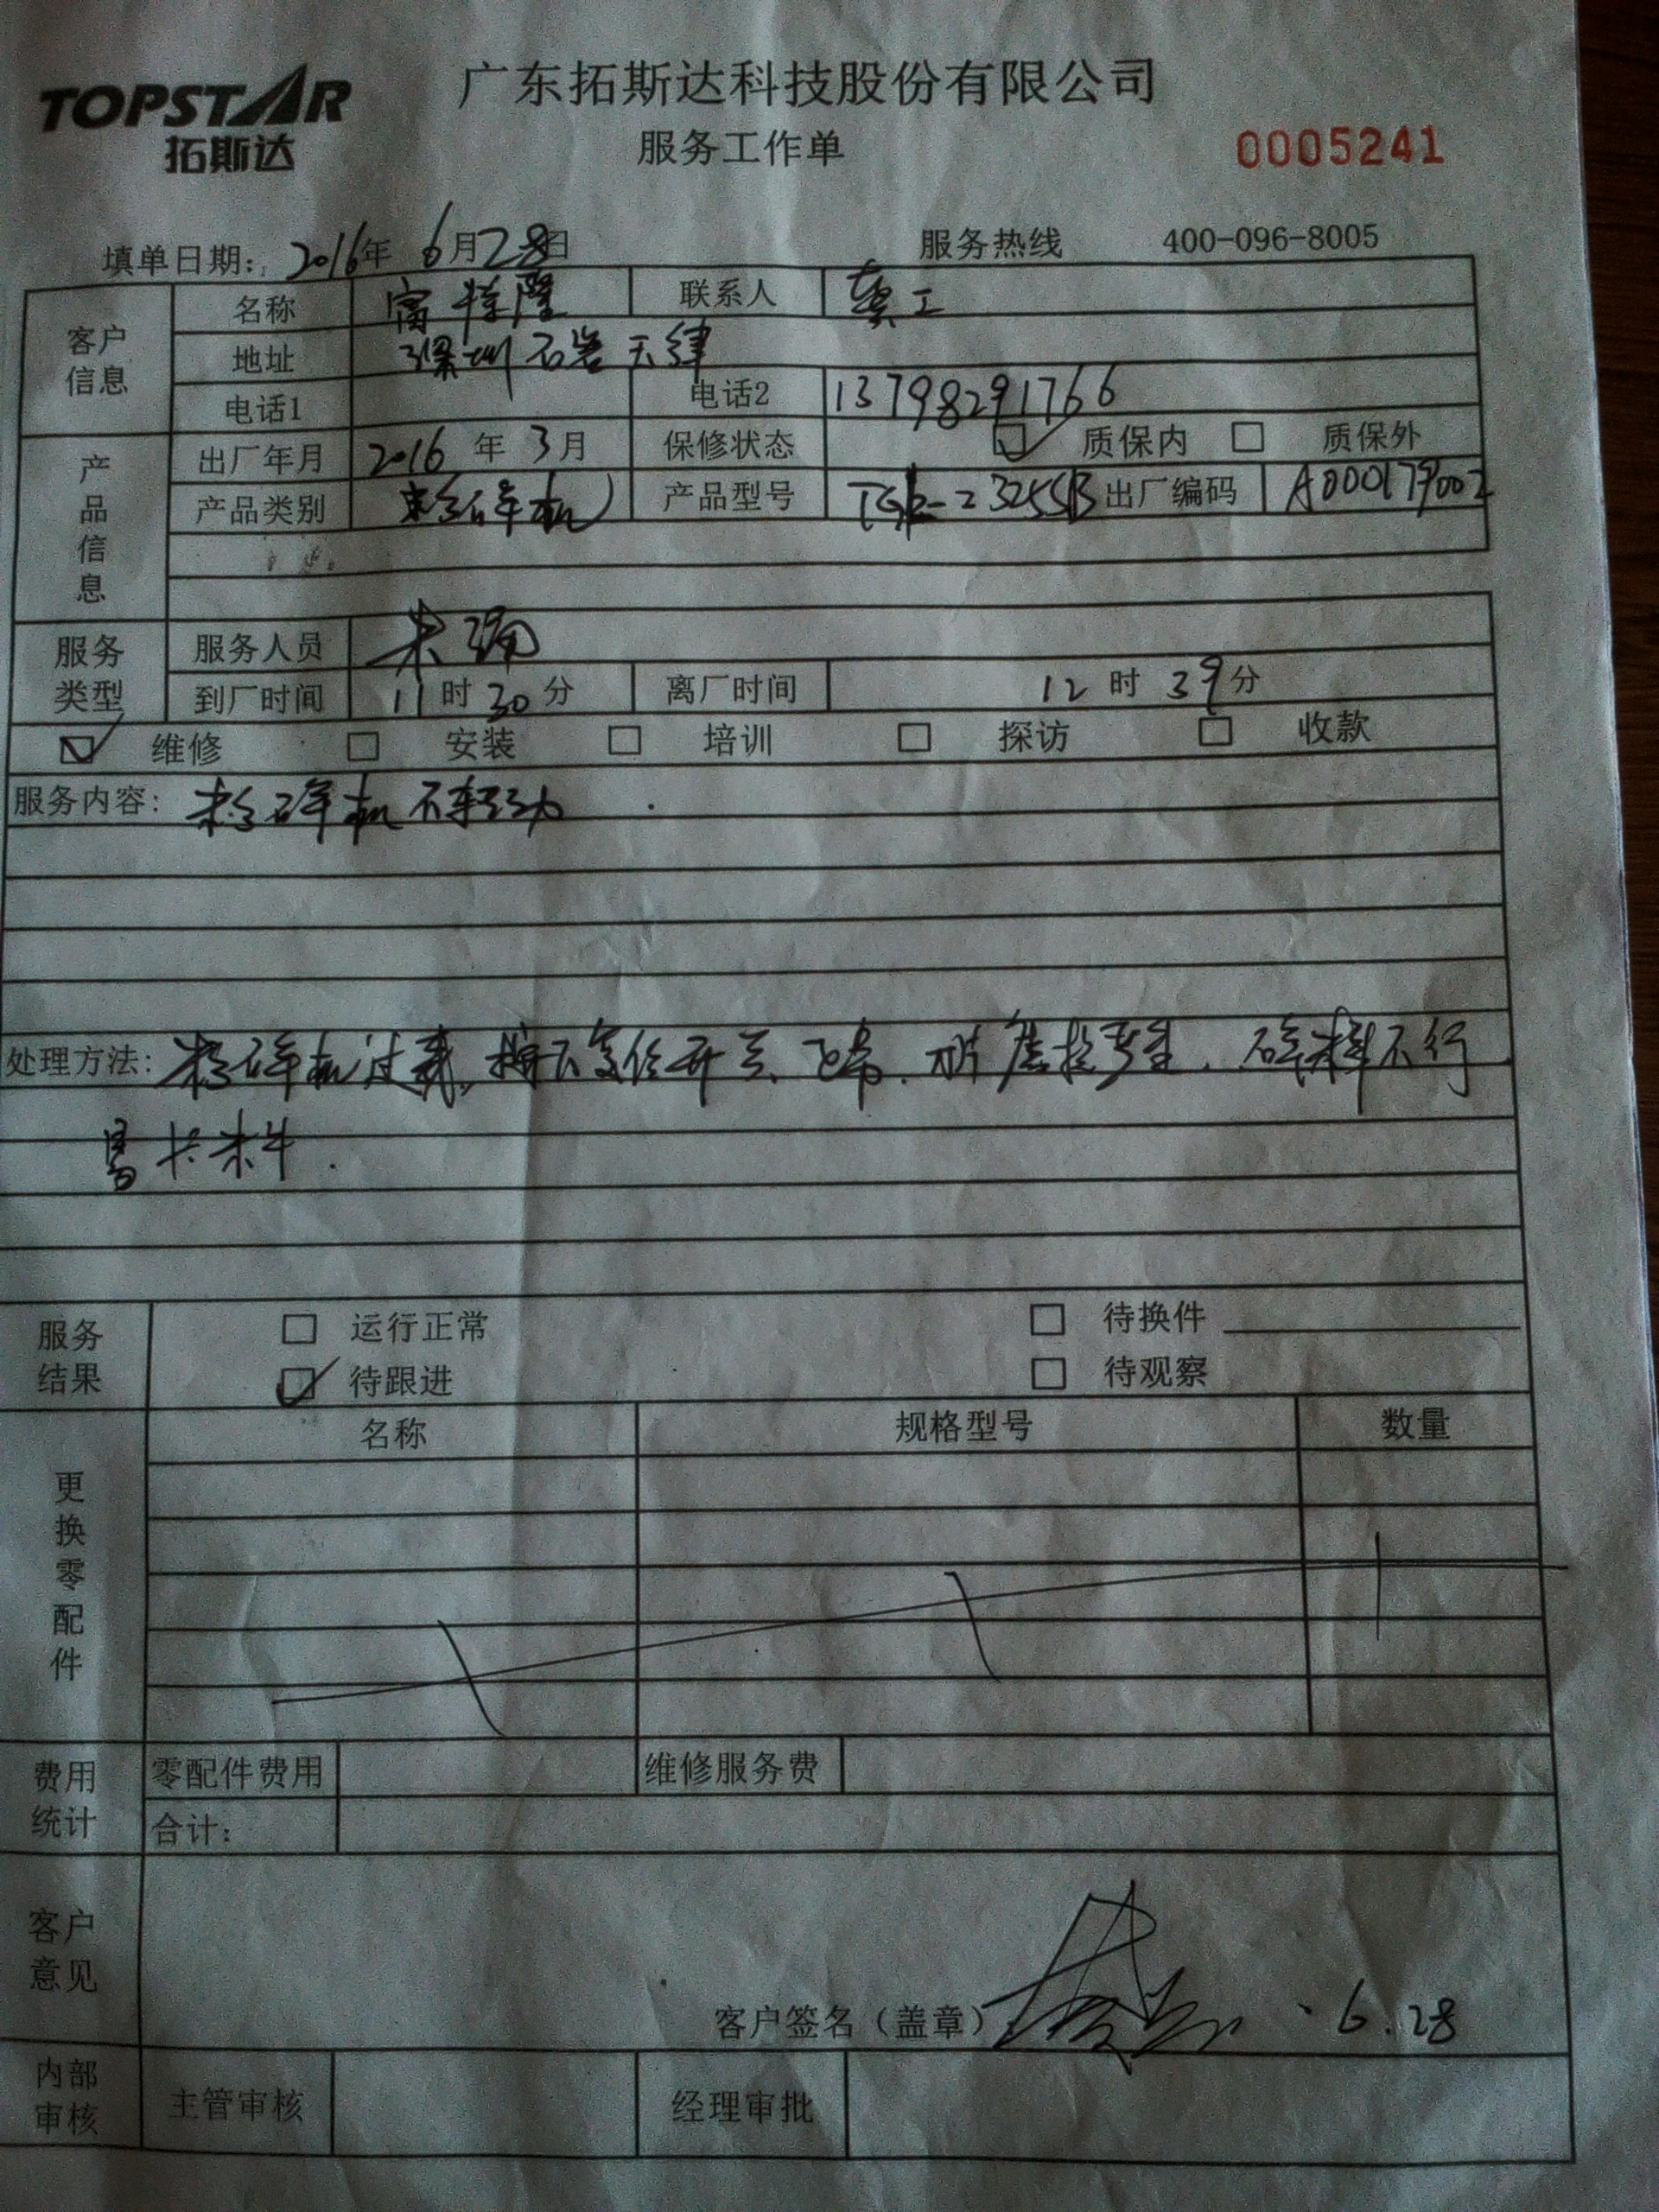 TOPSTAR
拓斯达
广东拓斯达科技股份有限公司
服务工作单
0005241
填单日期: 2016年 6月28日 服务热线 400-096-8005
客户信息
名称 富特隆 联系人 龚工
地址 深圳石岩天律
电话1 电话2 13798291766
产品信息
出厂年月 2016 年 3月 保修状态 质保内 质保外
产品类别 粉碎机 产品型号 出厂编码 A000179002
服务类型
服务人员 朱
到厂时间 11时30分 离厂时间 12时39分
维修 安装 培训 探访 收款
服务内容: 粉碎机不转动
处理方法: 粉碎机过载, 按下复位开关, 正常. 刀片磨损严重. 碎料不行
易卡料.
服务结果
运行正常 待换件
待跟进 待观察
更换零配件
名称 规格型号 数量
费用统计
零配件费用 维修服务费
合计:
客户意见
客户签名（盖章） 6.28
内部审核
主管审核 经理审批